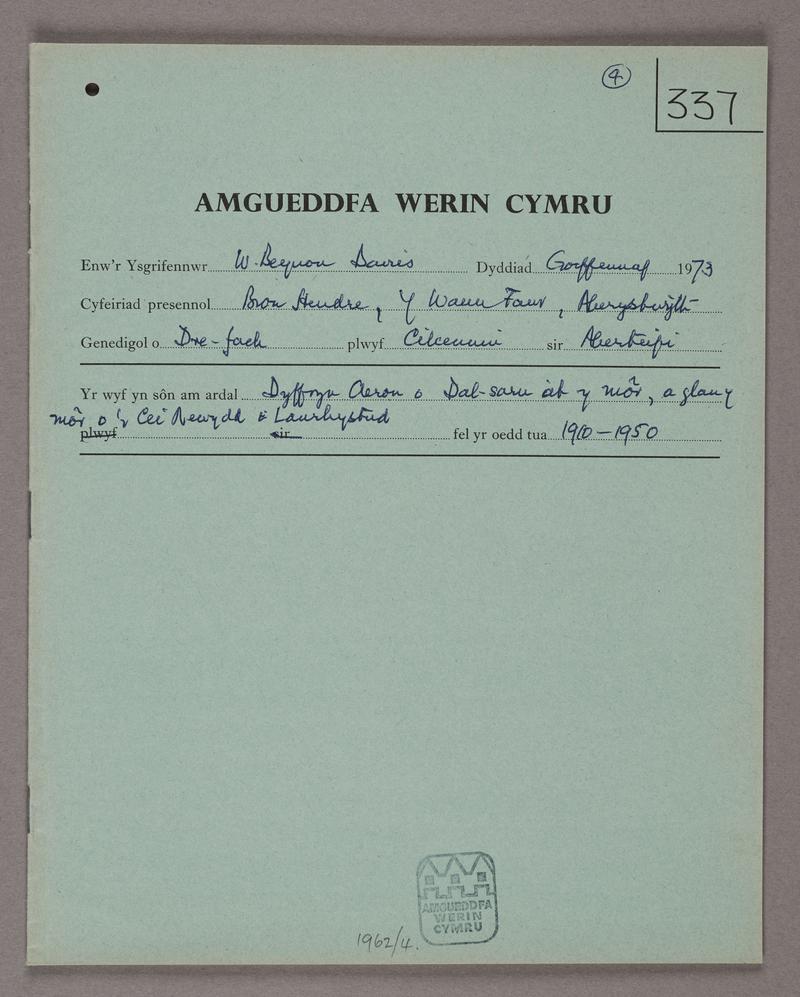 4
337
AMGUEDDFA WERIN CYMRU
Enw'r Ysgrifennwr W. Beynon Davies Dyddiad Gorffennaf 1973
Cyfeiriad presennol Bron Hendre, Y Waun Fawr, Aberystwyth
Genedigol o Dre-fach plwyf Cilcennin sir Aberteifi
Yr wyf yn sôn am ardal Dyffryn Aeron o Dal-sarn at y môr, a glan y
môr o'r Cei Newydd i Lanrhystud
plwyf sir fel yr oedd tua 1910-1950
AMGUEDDFA
WERIN
CYMRU
1962/4.